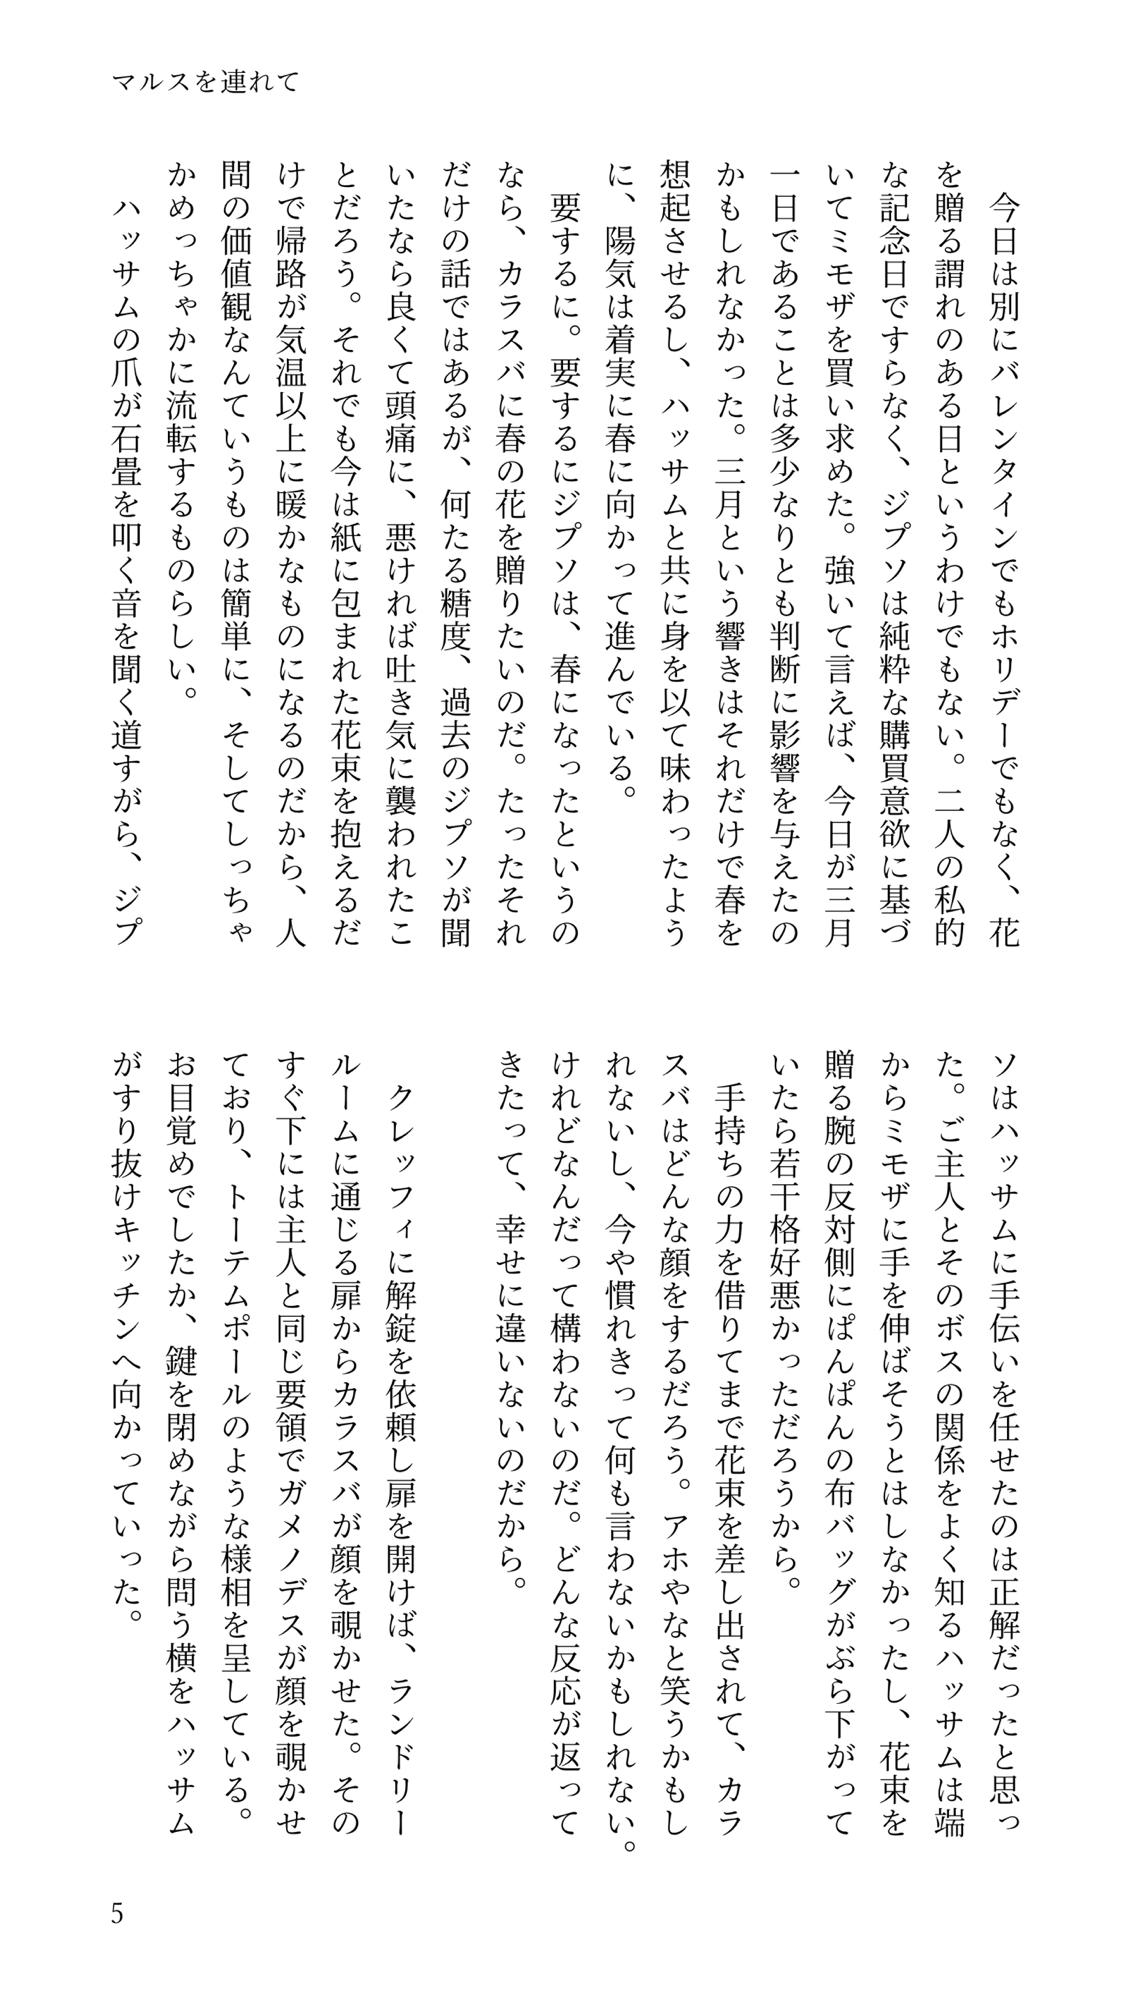 マルスを連れて
　今日は別にバレンタインでもホリデーでもなく、花
を贈る謂れのある日というわけでもない。二人の私的
な記念日ですらなく、ジプソは純粋な購買意欲に基づ
いてミモザを買い求めた。強いて言えば、今日が三月
一日であることは多少なりとも判断に影響を与えたの
かもしれなかった。三月という響きはそれだけで春を
想起させるし、ハッサムと共に身を以て味わったよう
に、陽気は着実に春に向かって進んでいる。
　要するに。要するにジプソは、春になったというの
なら、カラスバに春の花を贈りたいのだ。たったそれ
だけの話ではあるが、何たる糖度、過去のジプソが聞
いたなら良くて頭痛に、悪ければ吐き気に襲われたこ
とだろう。それでも今は紙に包まれた花束を抱えるだ
けで帰路が気温以上に暖かなものになるのだから、人
間の価値観なんていうものは簡単に、そしてしっちゃ
かめっちゃかに流転するものらしい。
　ハッサムの爪が石畳を叩く音を聞く道すがら、ジプ
ソはハッサムに手伝いを任せたのは正解だったと思っ
た。ご主人とそのボスの関係をよく知るハッサムは端
からミモザに手を伸ばそうとはしなかったし、花束を
贈る腕の反対側にぱんぱんの布バッグがぶら下がって
いたら若干格好悪かっただろうから。
　手持ちの力を借りてまで花束を差し出されて、カラ
スバはどんな顔をするだろう。アホやなと笑うかもし
れないし、今や慣れきって何も言わないかもしれない。
けれどなんだって構わないのだ。どんな反応が返って
きたって、幸せに違いないのだから。
　クレッフィに解錠を依頼し扉を開けば、ランドリー
ルームに通じる扉からカラスバが顔を覗かせた。その
すぐ下には主人と同じ要領でガメノデスが顔を覗かせ
ており、トーテムポールのような様相を呈している。
お目覚めでしたか、鍵を閉めながら問う横をハッサム
がすり抜けキッチンへ向かっていった。
5